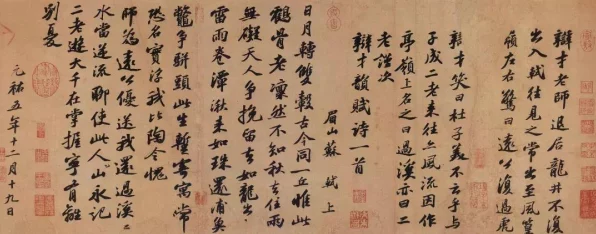 辯才老師退居龍井不復
出入軾往見之常出至風篁
嶺左右驚曰遠公復過虎
辯才笑曰杜子美不云乎與
子成二老來往亦風流因作
亭嶺上名之曰過溪亦曰二
老謹次
辯才韻賦詩一首
眉山蘇軾上
日月轉雙轂古今同一丘惟此
鶴骨老凜然不知秋去住兩
無礙天人爭挽留去如龍出
雷雨卷潭湫來如珠還浦魚
鱉爭駢頭此生暫寄寓常
恐名實浮我比陶令愧
師為遠公優送我還過溪〻
水當逆流聊使此山人永記
二老遊大千在掌握寧有離
別憂
元祐五年十二月十九日